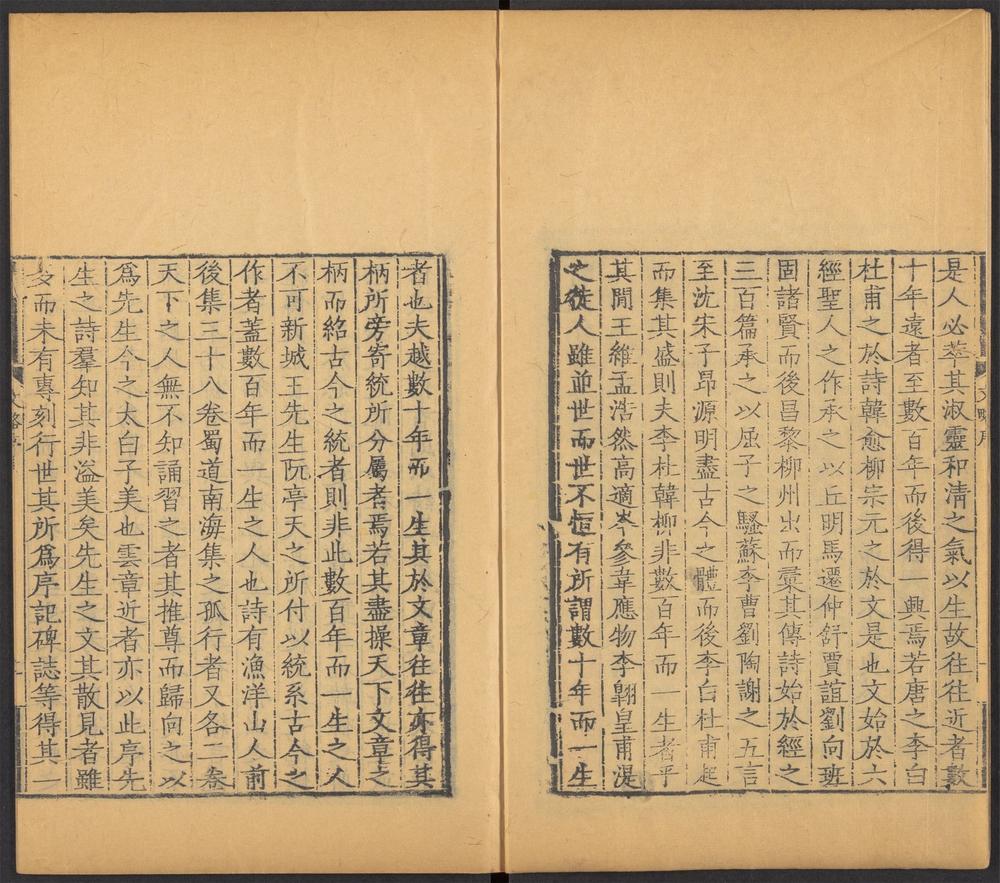 是人必萃其淑靈和清之氣以生故往往近者數
十年遠者至數百年而後得一興焉若唐之李白
杜甫之於詩韓愈柳宗元之於文是也文始於六
經聖人之作承之以丘明馬遷仲舒賈誼劉向班
固諸賢而後昌黎柳州出而彙其傳詩始於經之
三百篇承之以屈子之騷蘇李曹劉陶謝之五言
至沈宋子昂源明盡古今之體而後李白杜甫起
而集其盛則夫李杜韓柳非數百年而一生者乎
其閒王維孟浩然高適岑參韋應物李翺皇甫湜
之徒人雖並世而世不恒有所謂數十年而一生
者也夫越數十年而一生其於文章往往亦得其
柄所旁寄統所分屬者焉若其盡操天下文章之
柄而紹古今之統者則非此數百年而一生之人
不可新城王先生阮亭天之所付以統系古今之
作者蓋數百年而一生之人也詩有漁洋山人前
後集三十八卷蜀道南海集之孤行者又各二卷
天下之人無不知誦習之者其推尊而歸向之以
爲先生今之太白子美也雲章近者亦以此序先
生之詩羣知其非溢美矣先生之文其散見者雖
多而未有專刻行世其所爲序記碑誌等得其一